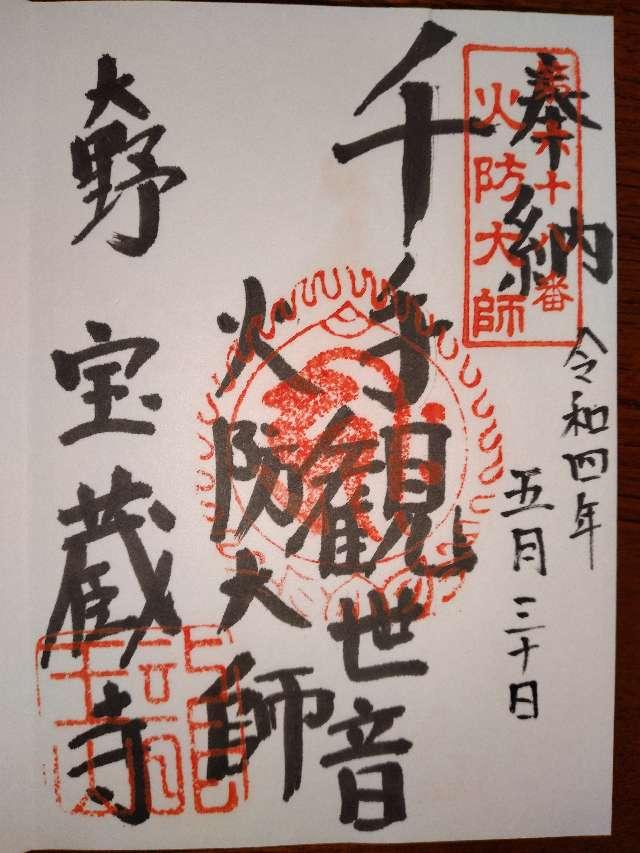 奉納
第六十八番
火防大師
令和四年
五月三十日
千手観世音
火防大師
大野
宝蔵寺